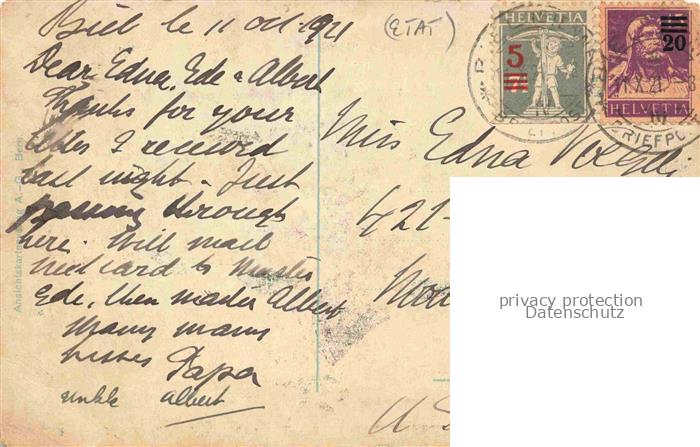 Biel le 11 Oct. 1921
(ETAT)
Dear Edna, Ede & Albert
Thanks for your
I received
last night. Just
passing through
here. Will mail
next card to Master
Ede, then mader Albert
Many many
kisses Papa
unkle Albert
Miss Edna
421-
U S
HELVETIA
5
HELVETIA
20
BRIEFPOST
Ansichtskarten A.-G. Bern
privacy protection
Datenschutz